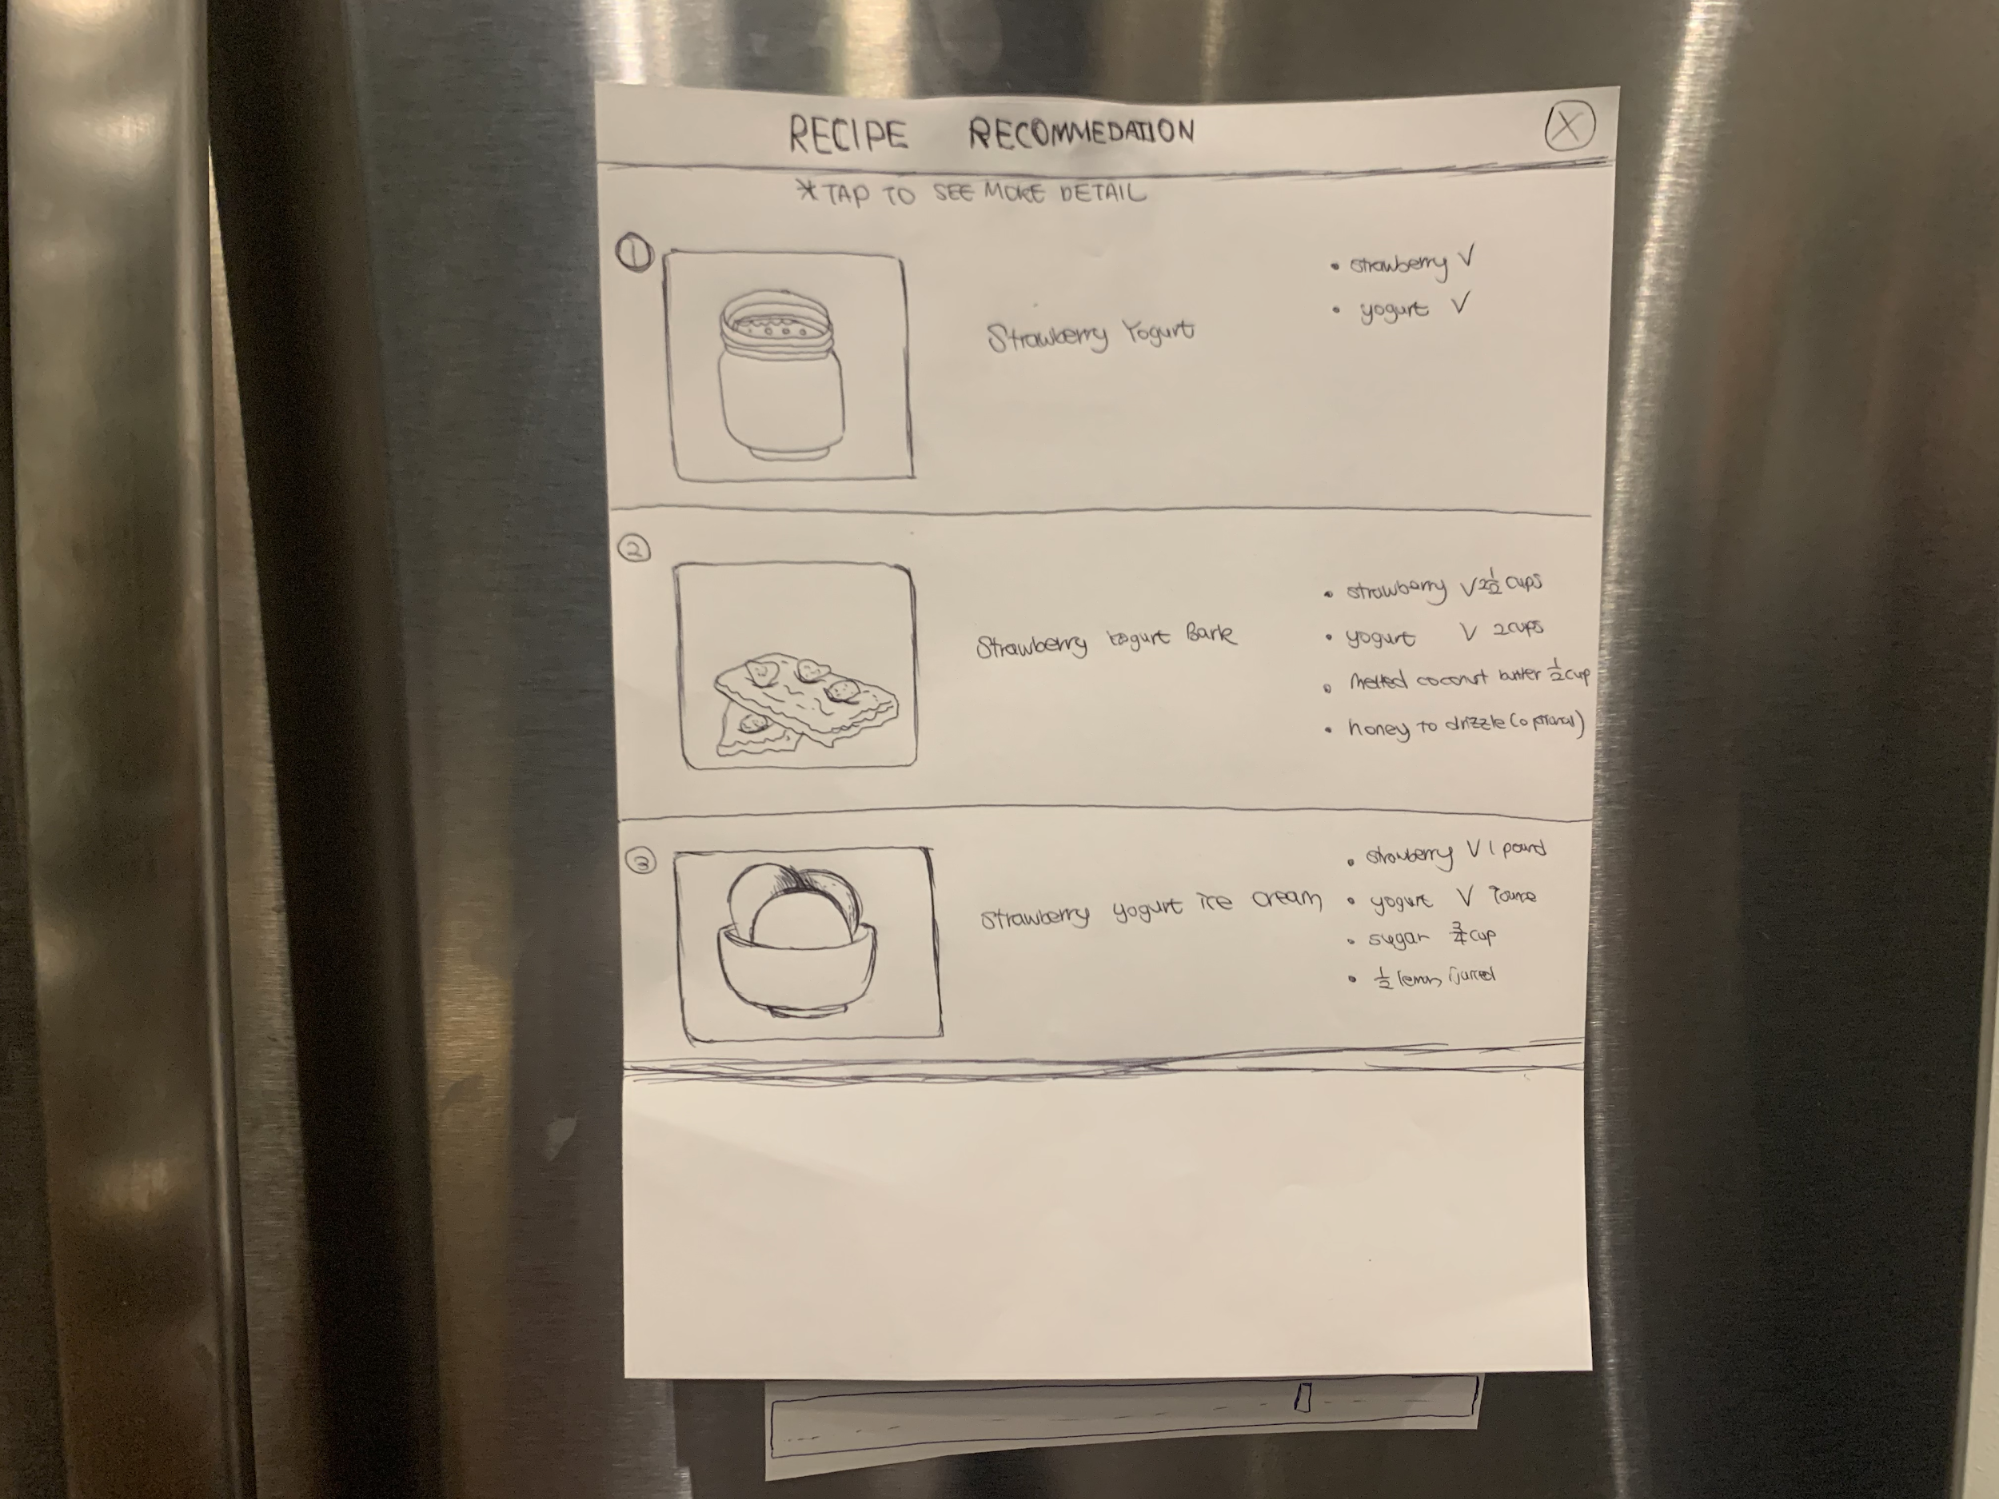 RECIPE RECOMMEDATION X
*TAP TO SEE MORE DETAIL
1
Strawberry Yogurt
• strawberry V
• yogurt V
2
Strawberry Yogurt Bark
• strawberry V 2½ cups
• yogurt V 2cups
• melted coconut butter ½ cup
• honey to drizzle (optional)
3
Strawberry yogurt ice cream
• strowberry V 1 pound
• yogurt V
• sugar ¾ cup
• ½ lemon